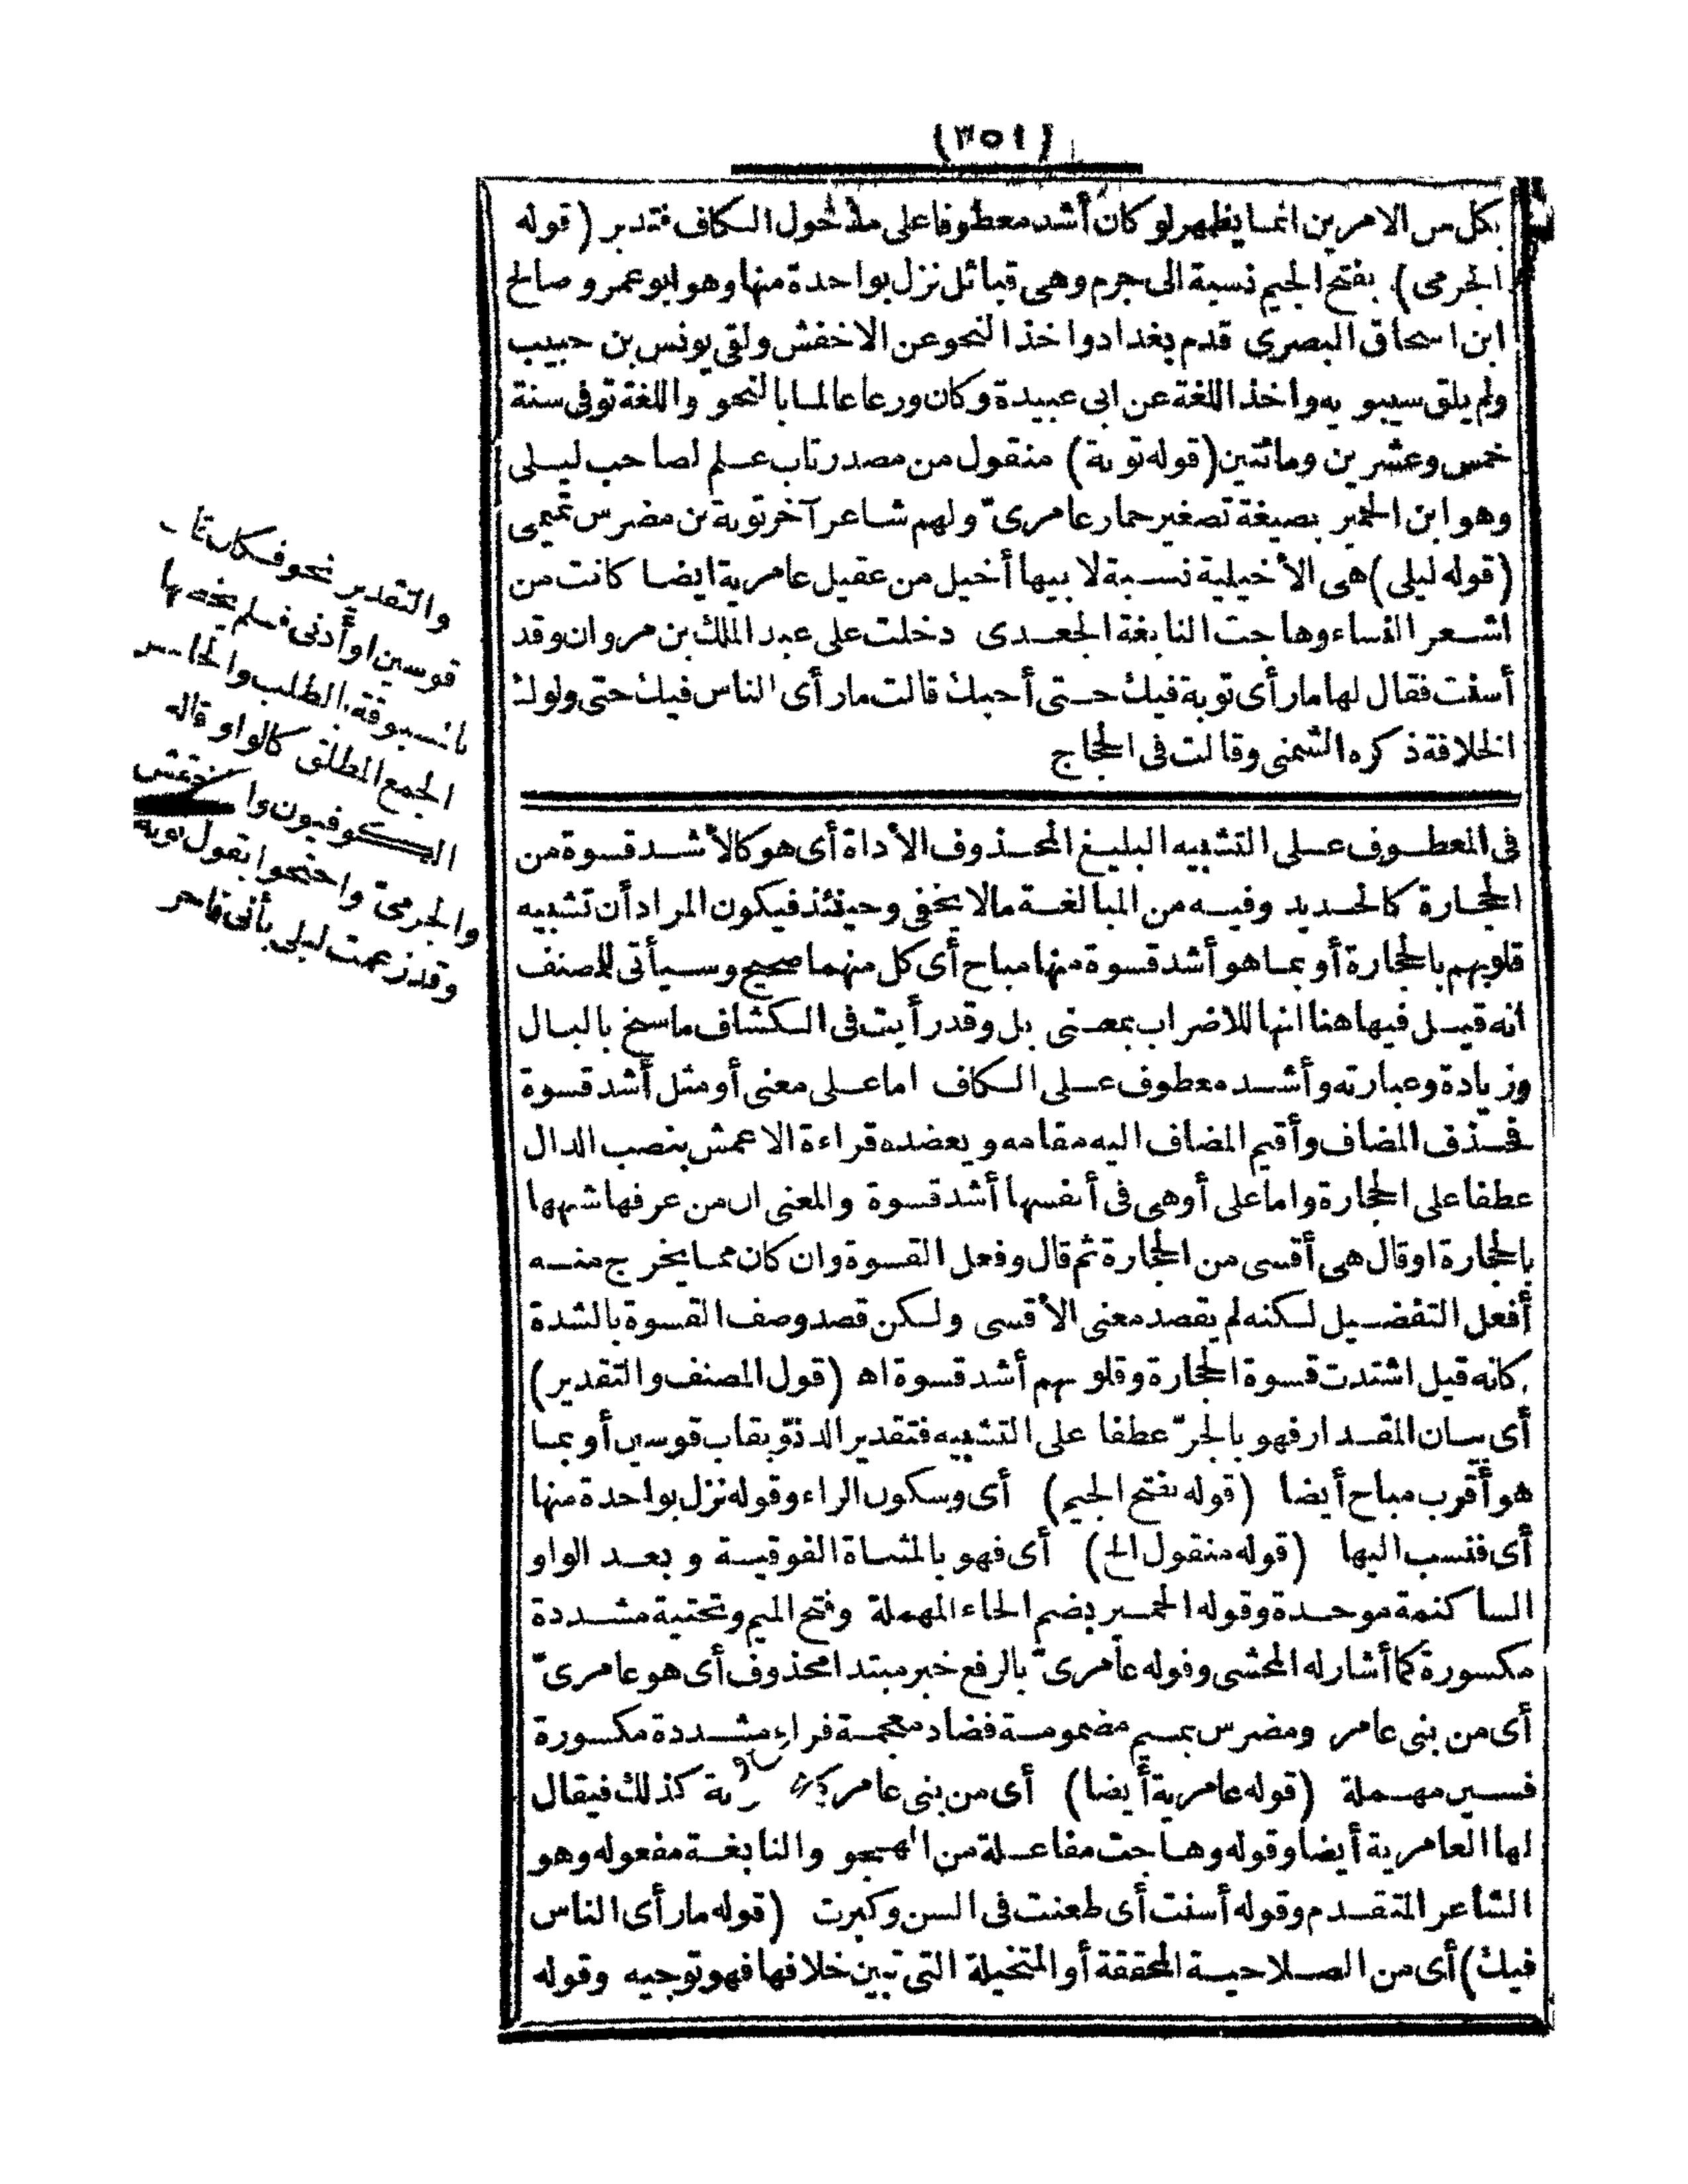 (٣٥١)
بكل من الامرين انما يظهر لو كان أشد معطوفا على مدخول الكاف فتدبر (قوله
الجرمى) بفتح الجيم نسبة الى جرم وهى قبائل نزل بواحدة منها وهو ابو عمرو صالح
ابن اسحاق البصرى قدم بغداد واخذ النحو عن الاخفش ولقى يونس بن حبيب
ولم يلق سيبويه واخذ اللغة عن ابى عبيدة وكان ورعا عالما بالنحو واللغة توفى سنة
خمس وعشرين ومائتين (قوله توبة) منقول من مصدر تاب علم لصاحب ليلى
وهو ابن الحمير بصيغة تصغير حمار عامرىّ ولهم شاعر آخر توبة بن مضرس تميمى
(قوله ليلى) هى الأخيلية نسبة لابيها أخيل من عقيل عامرية ايضا كانت من
اشعر النساء وهاجت النابغة الجعدى دخلت على عبد الملك بن مروان وقد
أسنت فقال لها ما رأى توبة فيك حتى أحبك قالت ما رأى الناس فيك حتى ولوك
الخلافة ذكره الشمنى وقالت فى الحجاج
والتقدير نحو فكان قاب
قوسين او أدنى فلم يخصها
بالمسبوقة بالطلب والخامس
الجمع المطلق كالواو قاله
الكوفيون والاخفش
والجرمىّ واحتجوا بقول توبة
وقد زعمت ليلى بأنى فاجر
فى المعطوف على التشبيه البليغ المحذوف الأداة أى هو كالأشد قسوة من
الحجارة كالحديد وفيه من المبالغة ما لا يخفى وحينئذ فيكون المراد أن تشبيه
قلوبهم بالحجارة أو بما هو أشد قسوة منها مباح أى كل منهما صحيح وسيأتى للمصنف
انه قيل فيها هنا انها للاضراب بمعنى بل وقد رأيت فى الكشاف ما سنح بالبال
وزيادة وعبارته وأشد معطوف على الكاف اما على معنى أو مثل أشد قسوة
فحذف المضاف وأقيم المضاف اليه مقامه ويعضده قراءة الاعمش بنصب الدال
عطفا على الحجارة واما على أو هى فى أنفسها أشد قسوة والمعنى ان من عرفها شبهها
بالحجارة او قال هى أقسى من الحجارة ثم قال وفعل القسوة وان كان مما يخرج منه
أفعل التفضيل لكنه لم يقصد معنى الأقسى ولكن قصد وصف القسوة بالشدة
كانه قيل اشتدت قسوة الحجارة وقلوبهم أشد قسوة اه (قول المصنف والتقدير)
أى بيان المقدار فهو بالجرّ عطفا على التشبيه فتقدير الدنوّ بقاب قوسين أو بما
هو أقرب مباح أيضا (قوله بفتح الجيم) أى وسكون الراء وقوله نزل بواحدة منها
أى فنسب اليها (قوله منقول الخ) أى فهو بالمثناة الفوقية وبعد الواو
الساكنة موحدة وقوله الحمير بضم الحاء المهملة وفتح الميم وتحتية مشددة
مكسورة كما أشار له المحشى وقوله عامرىّ بالرفع خبر مبتدا محذوف أى هو عامرىّ
أى من بنى عامر ومضرس بميم مضمومة فضاد معجمة فراء مشددة مكسورة
فسين مهملة (قوله عامرية أيضا) أى من بنى عامر كذلك فيقال
لها العامرية أيضا وقوله وهاجت مفاعلة من الهجو والنابغة مفعوله وهو
الشاعر المتقدم وقوله أسنت أى طعنت فى السن وكبرت (قوله ما رأى الناس
فيك) أى من الصلاحية المحققة أو المتخيلة التى تبين خلافها فهو توجيه وقوله